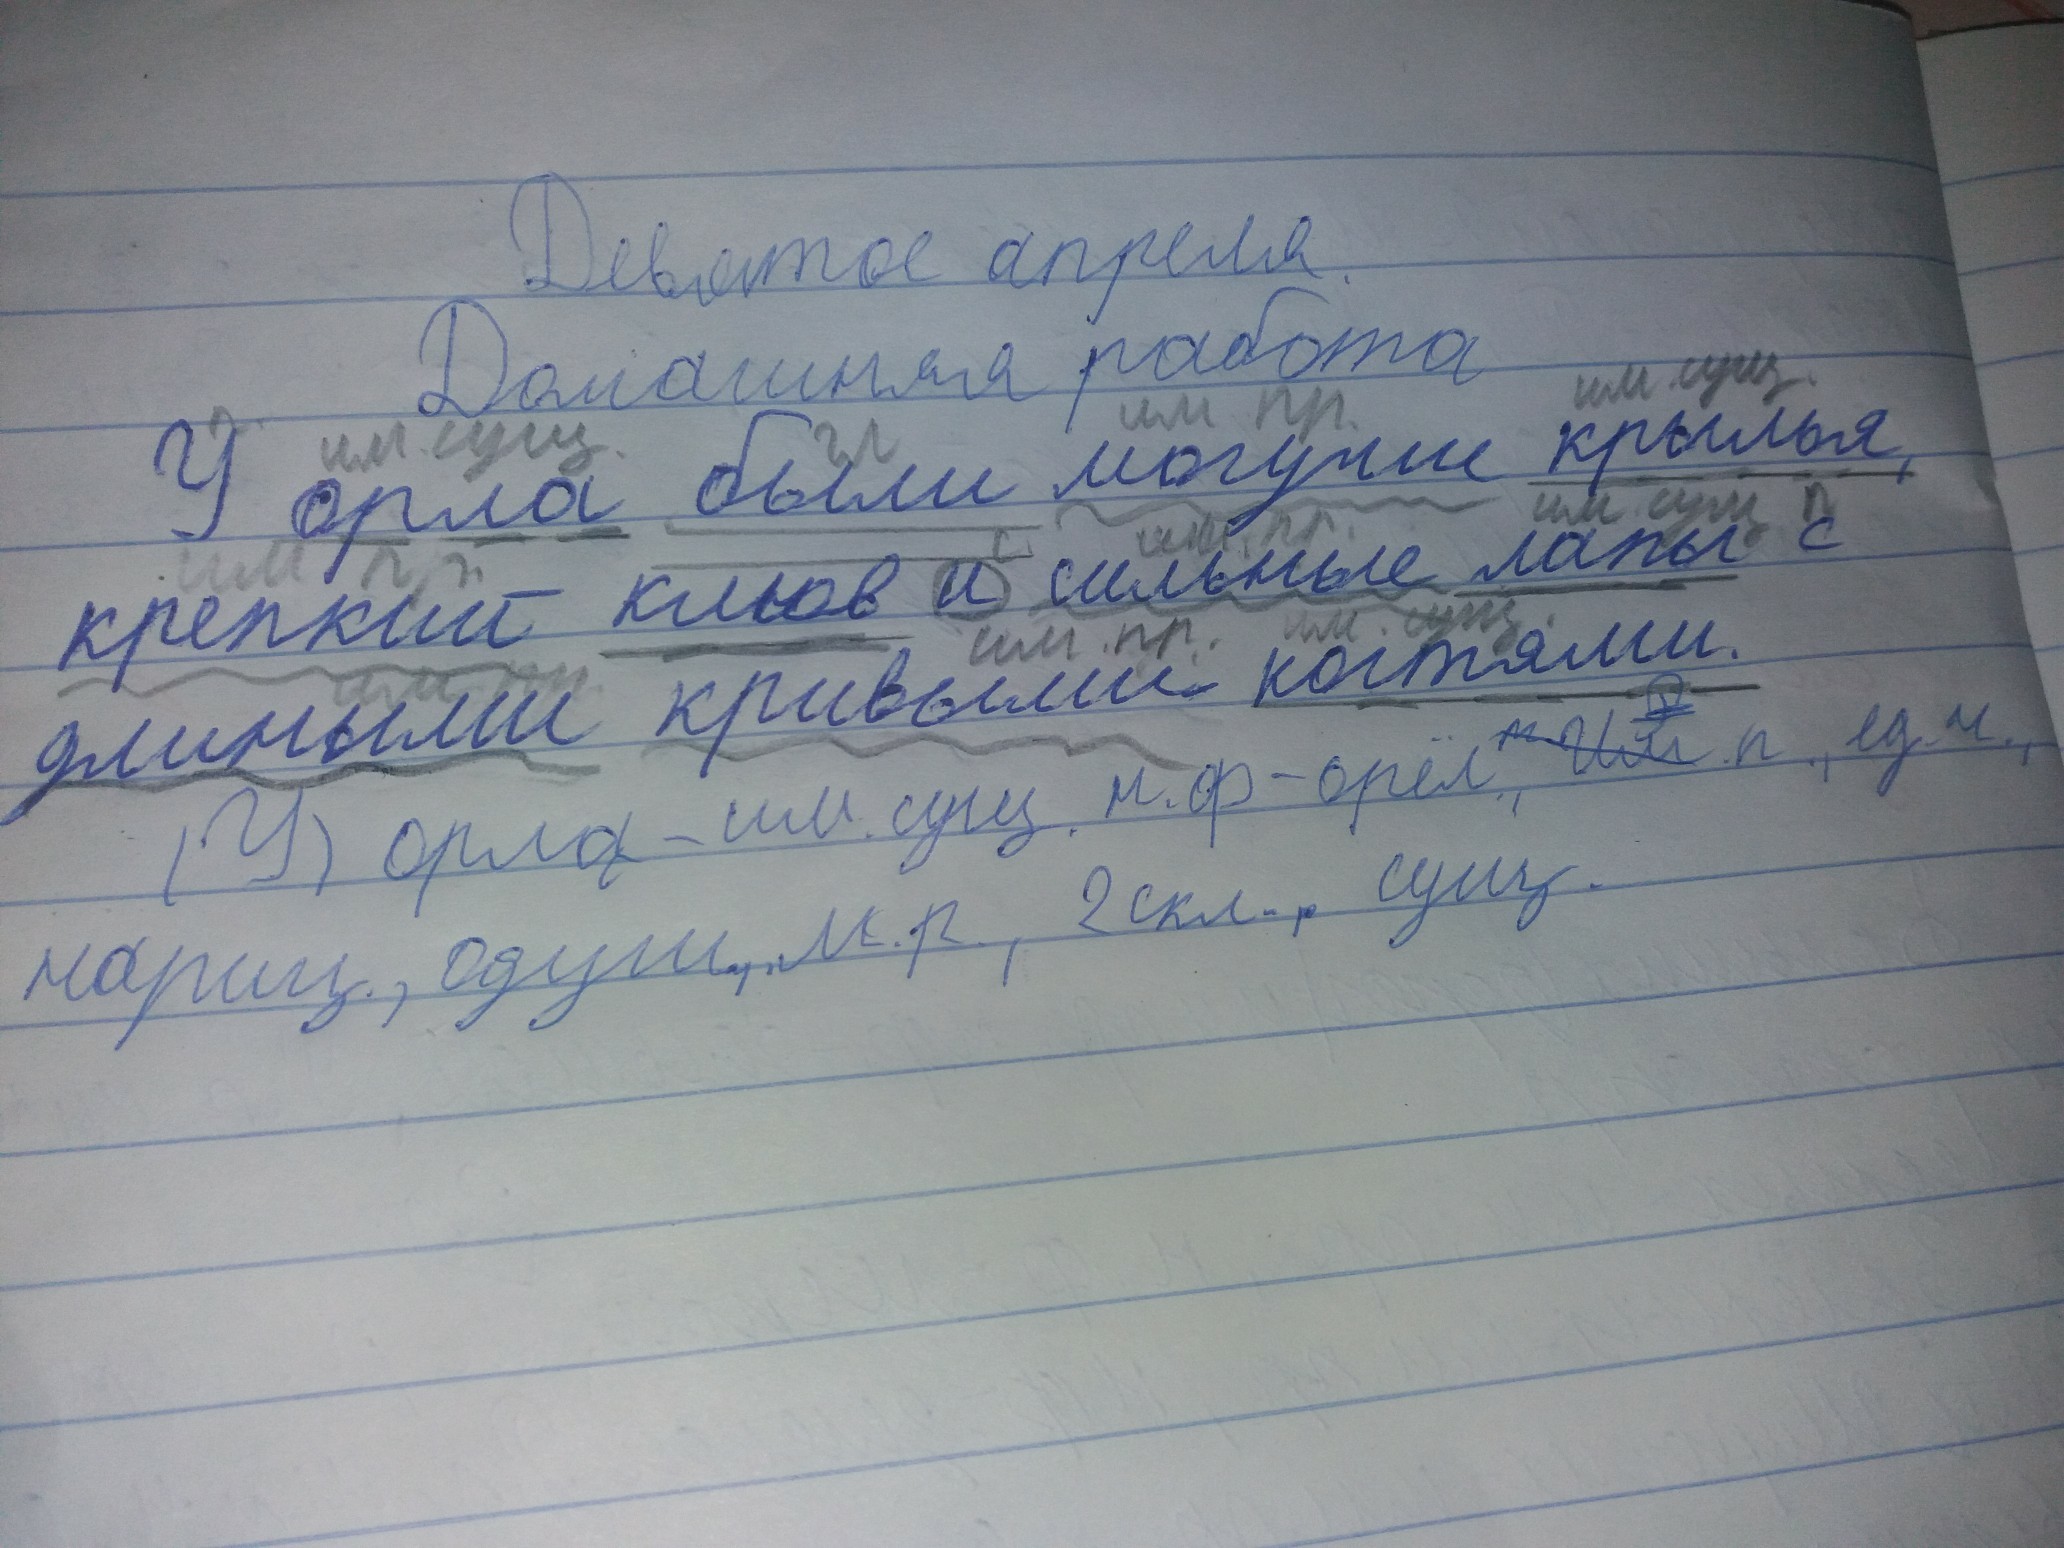 Девятое апреля.
Домашняя работа
им. сущ. гл им пр. им. сущ.
У орла были могучие крылья,
им пр. с им. пр. им. сущ п
крепкий клюв и сильные лапы с
им. пр. им. пр. им. сущ.
длиными кривыми когтями.
(У) орла - им. сущ. н.ф - орёл, Им.п., ед.ч.,
нариц., одуш., м.р., 2 скл., сущ.